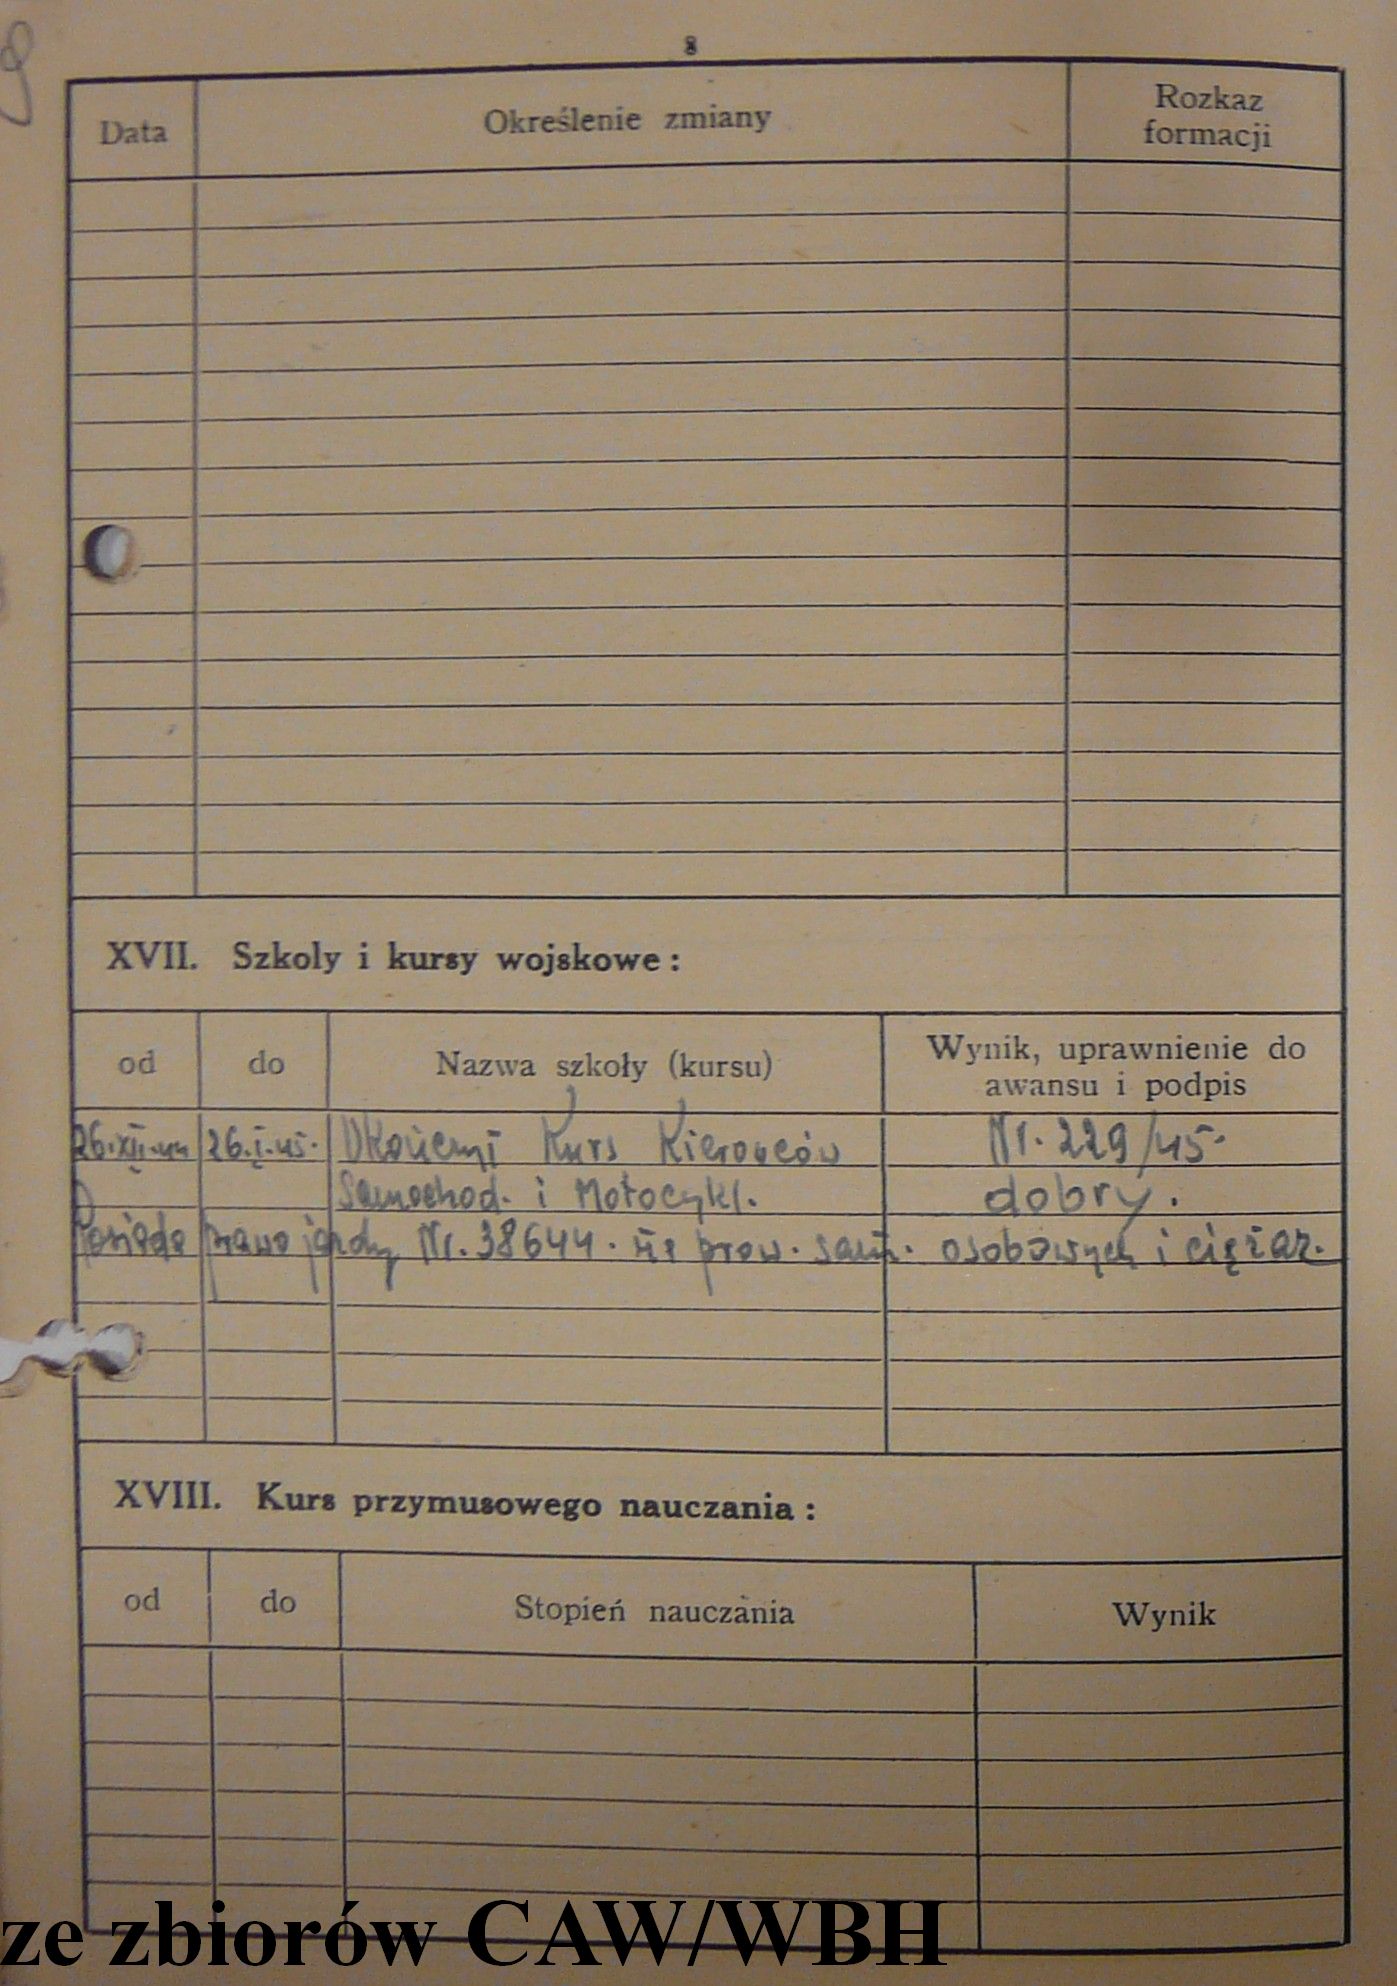 8
Data Określenie zmiany Rozkaz formacji
XVII. Szkoly i kursy wojskowe :
od do Nazwa szkoły (kursu) Wynik, uprawnienie do awansu i podpis
26.XII.44 26.I.45. Ukończył Kurs Kierowców Nr. 229/45.
Samochod. i Motocykl. dobry.
Posiada prawo jazdy Nr. 38644. na prow. sam. osobowych i ciężar.
XVIII. Kurs przymusowego nauczania :
od do Stopień nauczania Wynik
ze zbiorów CAW/WBH